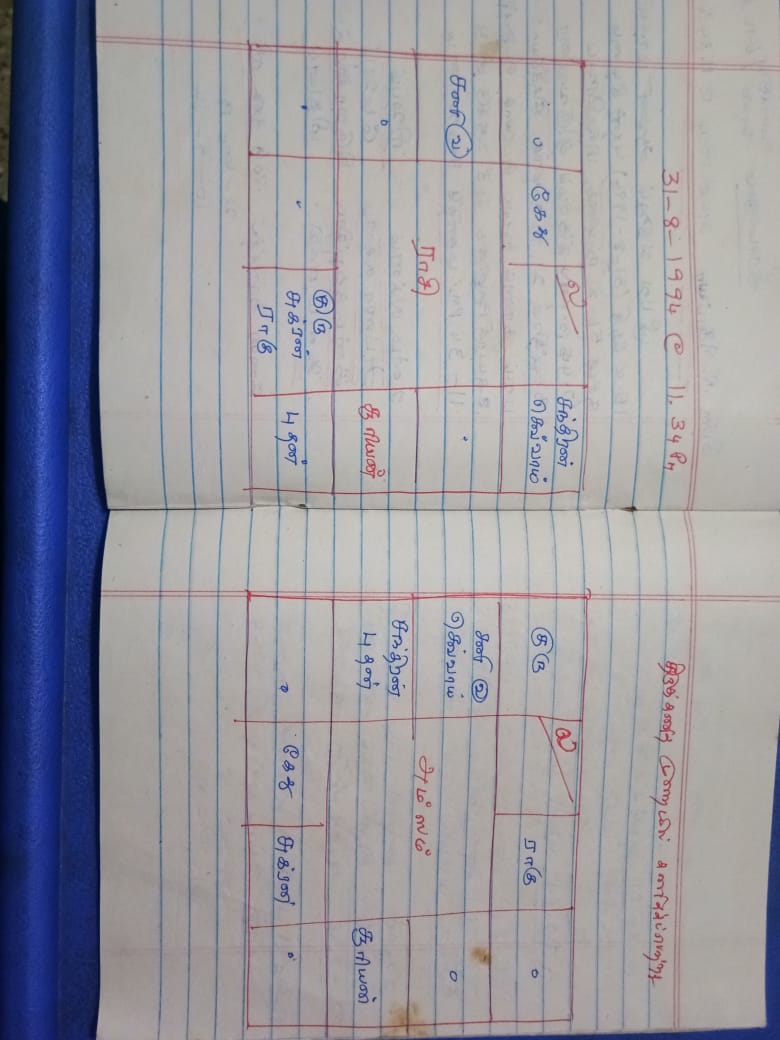 31-8-1994 @ 11.34 Pm
கேது
ல
சந்திரன்
செவ்வாய்
சனி (வ)
ராசி
சூரியன்
குரு
சுக்ரன்
ராகு
புதன்
திருக்கணித முறையில் கணிக்கப்பட்டது
குரு
ல
ராகு
சனி (வ)
செவ்வாய்
அம்ஸம்
சந்திரன்
புதன்
சூரியன்
கேது
சுக்ரன்